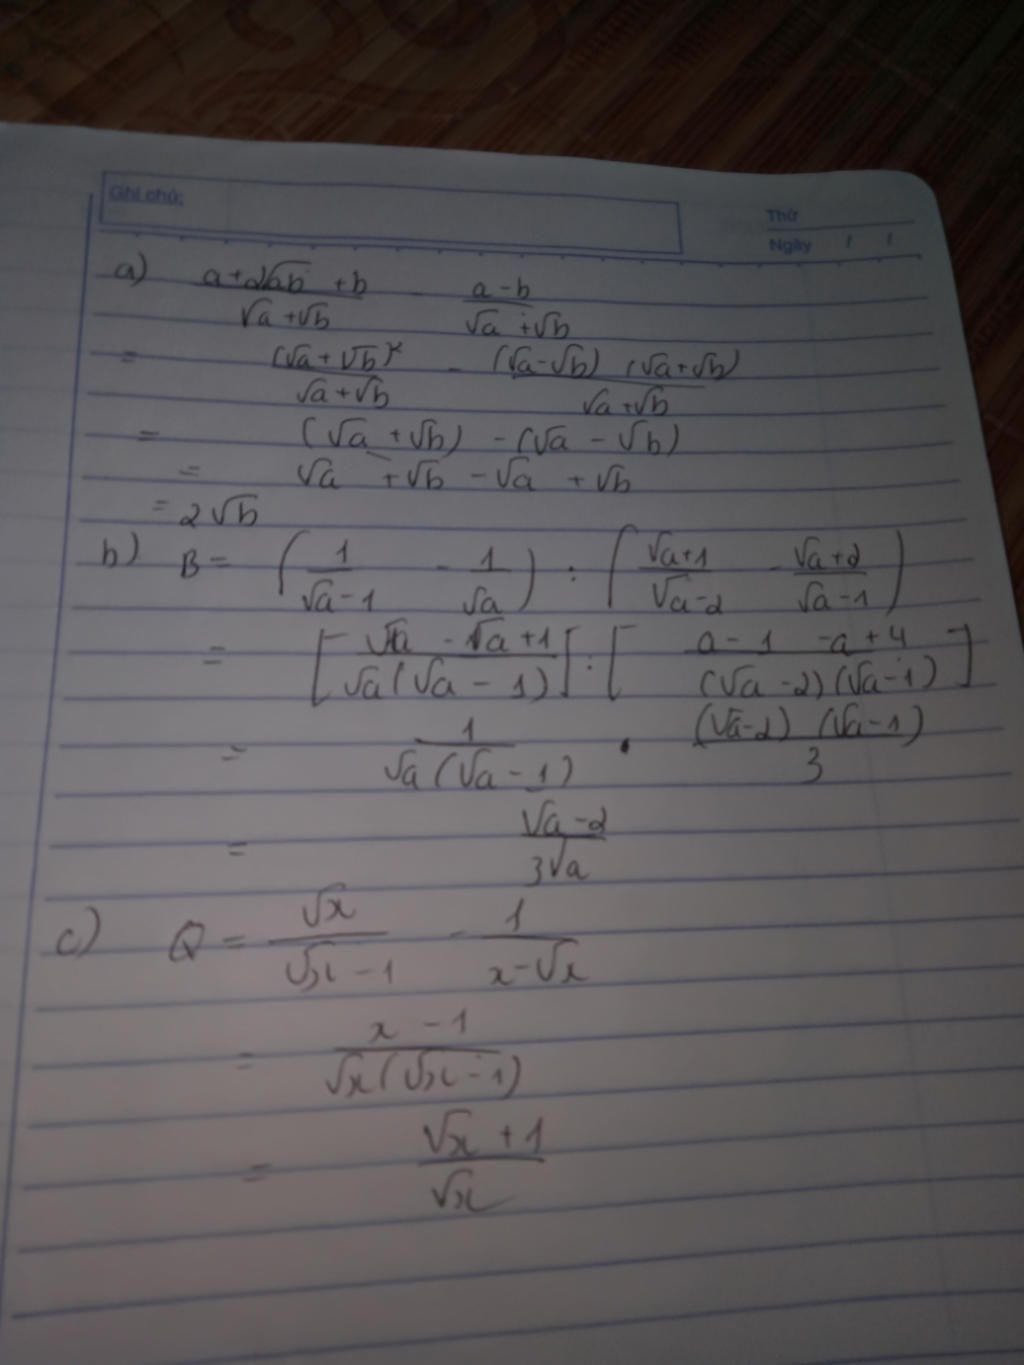 Ghi chú:
Thứ
Ngày / /
a) (a+2√ab+b)/(√a+√b) - (a-b)/(√a+√b)
= (√a+√b)²/(√a+√b) - (√a-√b)(√a+√b)/(√a+√b)
= (√a+√b) - (√a-√b)
= √a+√b-√a+√b
= 2√b
b) B = (1/(√a-1) - 1/√a) : ((√a+1)/(√a-2) - (√a+2)/(√a-1))
= [(√a-√a+1)/(√a(√a-1))] : [(a-1-a+4)/((√a-2)(√a-1))]
= 1/(√a(√a-1)) . (√a-2)(√a-1)/3
= (√a-2)/(3√a)
c) Q = √x/(√x-1) - 1/(x-√x)
= (x-1)/(√x(√x-1))
= (√x+1)/√x